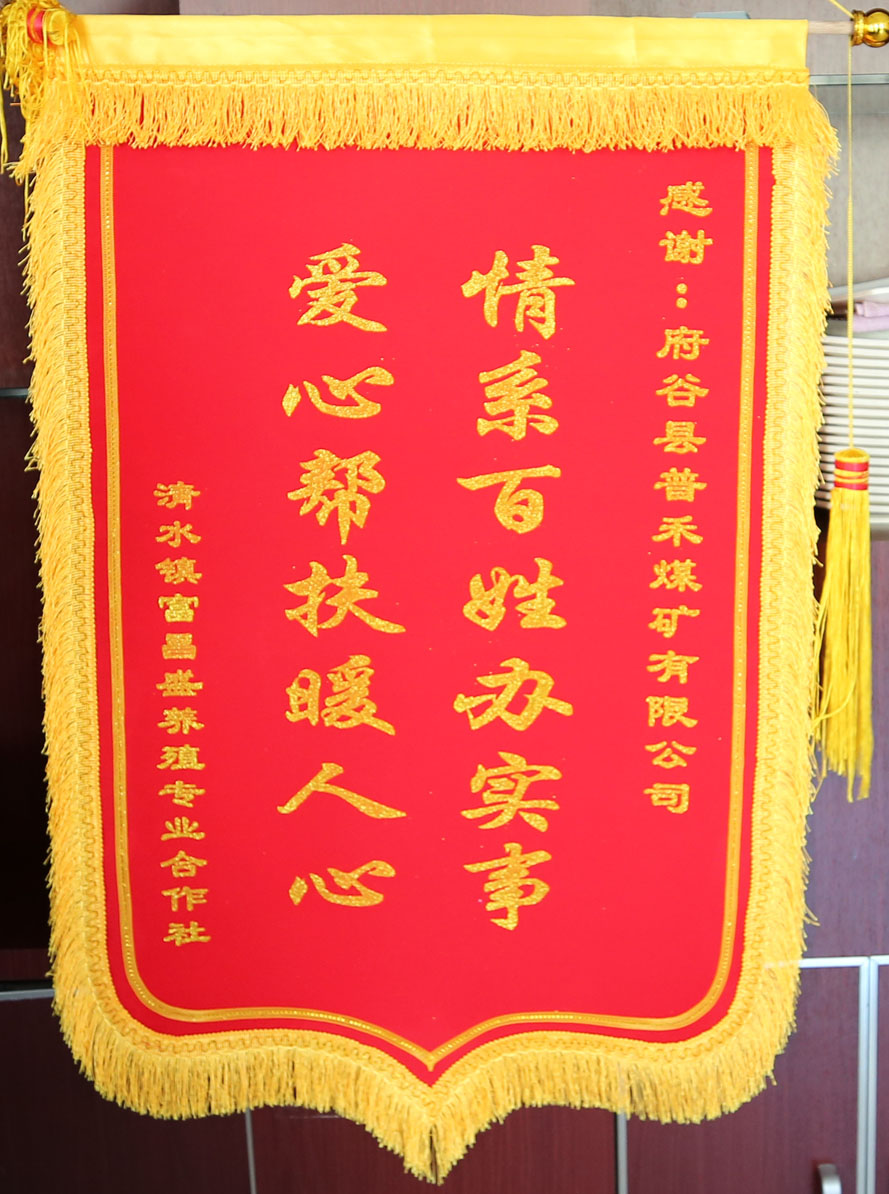 感谢：府谷县普禾煤矿有限公司
情系百姓办实事
爱心帮扶暖人心
清水镇富昌盛养殖专业合作社